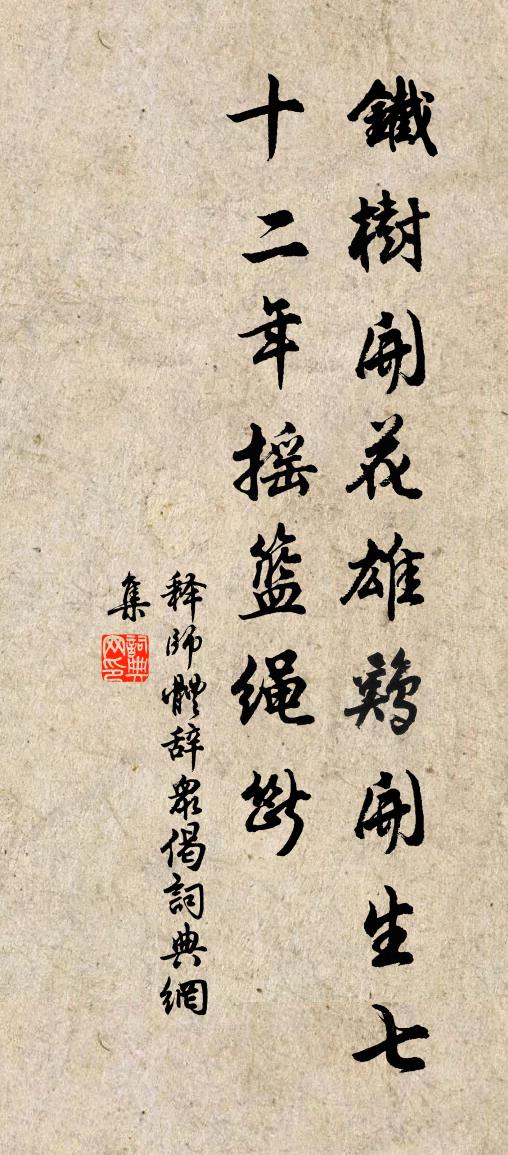 鐵樹開花雄鷄開生七
十二年摇籃繩斷
释師體辭衆偈詞典網
集
詞典
网印